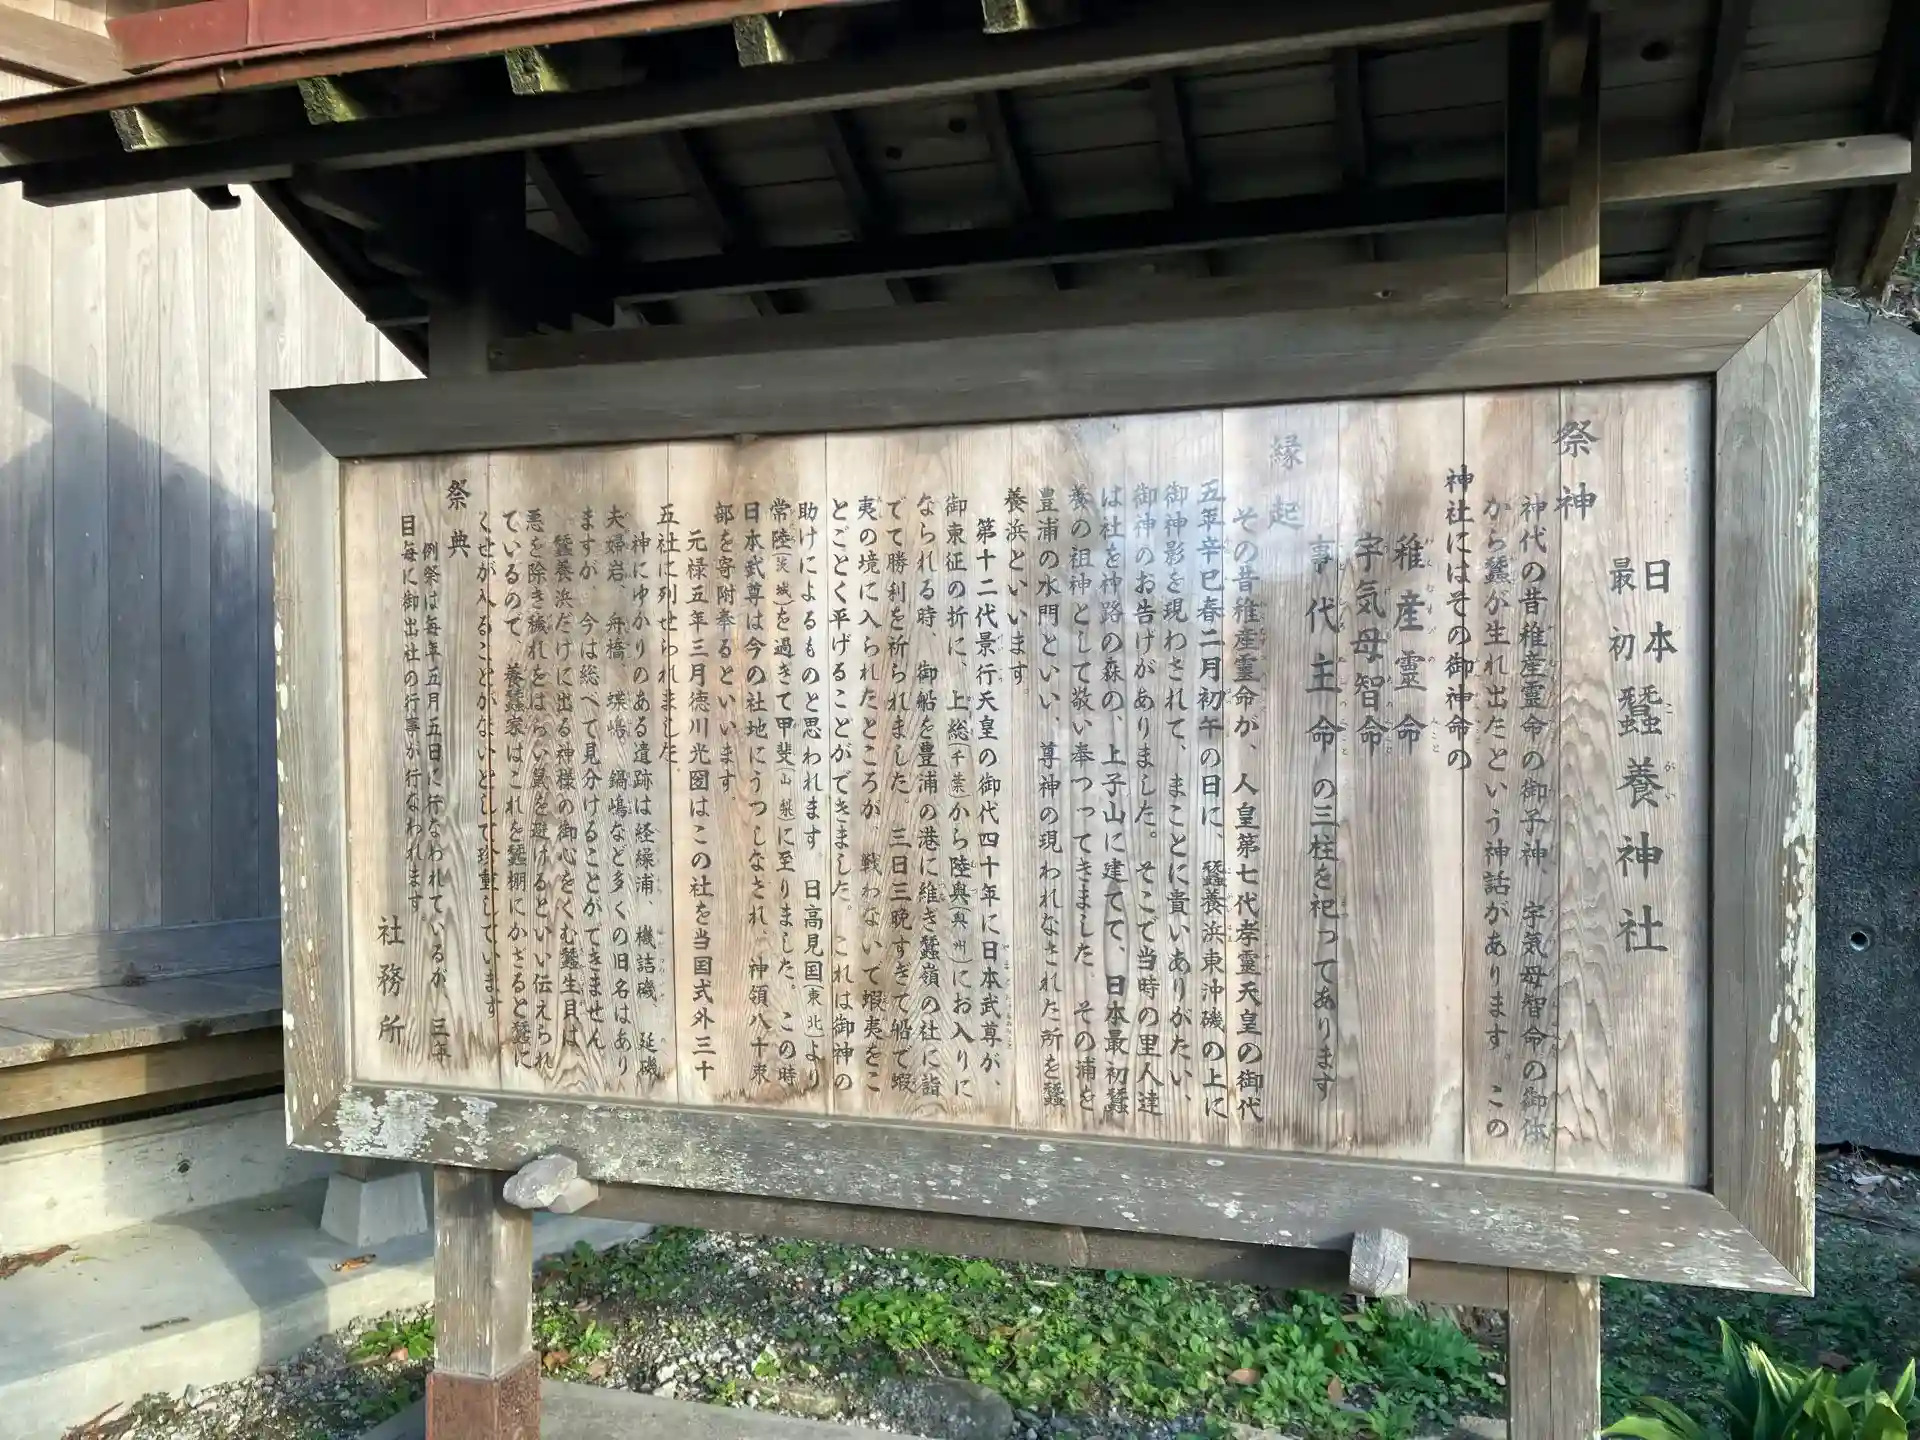 日本
最初
蠶養神社
祭神
神代の昔稚産霊命の御子神、宇気母智命の御体
から蠶が生れ出たという神話があります。この
神社にはその御神命の
稚産霊命
宇気母智命
事代主命の三柱を祀ってあります
縁起
その昔稚産霊命が、人皇第七代孝霊天皇の御代
五年辛巳春二月初午の日に、蠶養浜東沖磯の上に
御神影を現わされて、まことに貴いありがたい、
御神のお告げがありました。そこで当時の里人達
は社を神路の森の、上子山に建てて、日本最初蠶
養の祖神として敬い奉つってきました、その浦を
豊浦の水門といい、尊神の現われなされた所を蠶
養浜といいます。
第十二代景行天皇の御代四十年に日本武尊が、
御東征の折に、上総(千葉)から陸奥(奥州)にお入りに
なられる時、御船を豊浦の港に維ぎ蠶嶺の社に詣
でて勝利を祈られました。三日三晩すぎて船で蝦
夷の境に入られたところが、戦わないで蝦夷をこ
とごとく平げることができました。これは御神の
助けによるものと思われます。日高見国(東北)より
常陸(茨城)を過ぎて甲斐(山梨)に至りました。この時
日本武尊は今の社地にうつしなされ、神領八十束
部を寄附奉るといいます。
元禄五年三月徳川光圀はこの社を当国式外三十
五社に列せられました。
神にゆかりのある遺跡は経繰浦、機詰磯、延磯
夫婦岩、舟橋、蝶嶋、鍋嶋など多くの旧名はあり
ますが、今は総べて見分けることができません
蠶養浜だけに出る神様の御心をくむ蠶生貝は
悪を除き穢れをはらい鼠を避けるといい伝えられ
ているので、養蠶家はこれを蠶棚にかざると蠶に
くせが入ることがないとして珍重しています
祭典
例祭は毎年五月五日に行なわれているが、三年
目毎に御出社の行事が行なわれます
社務所